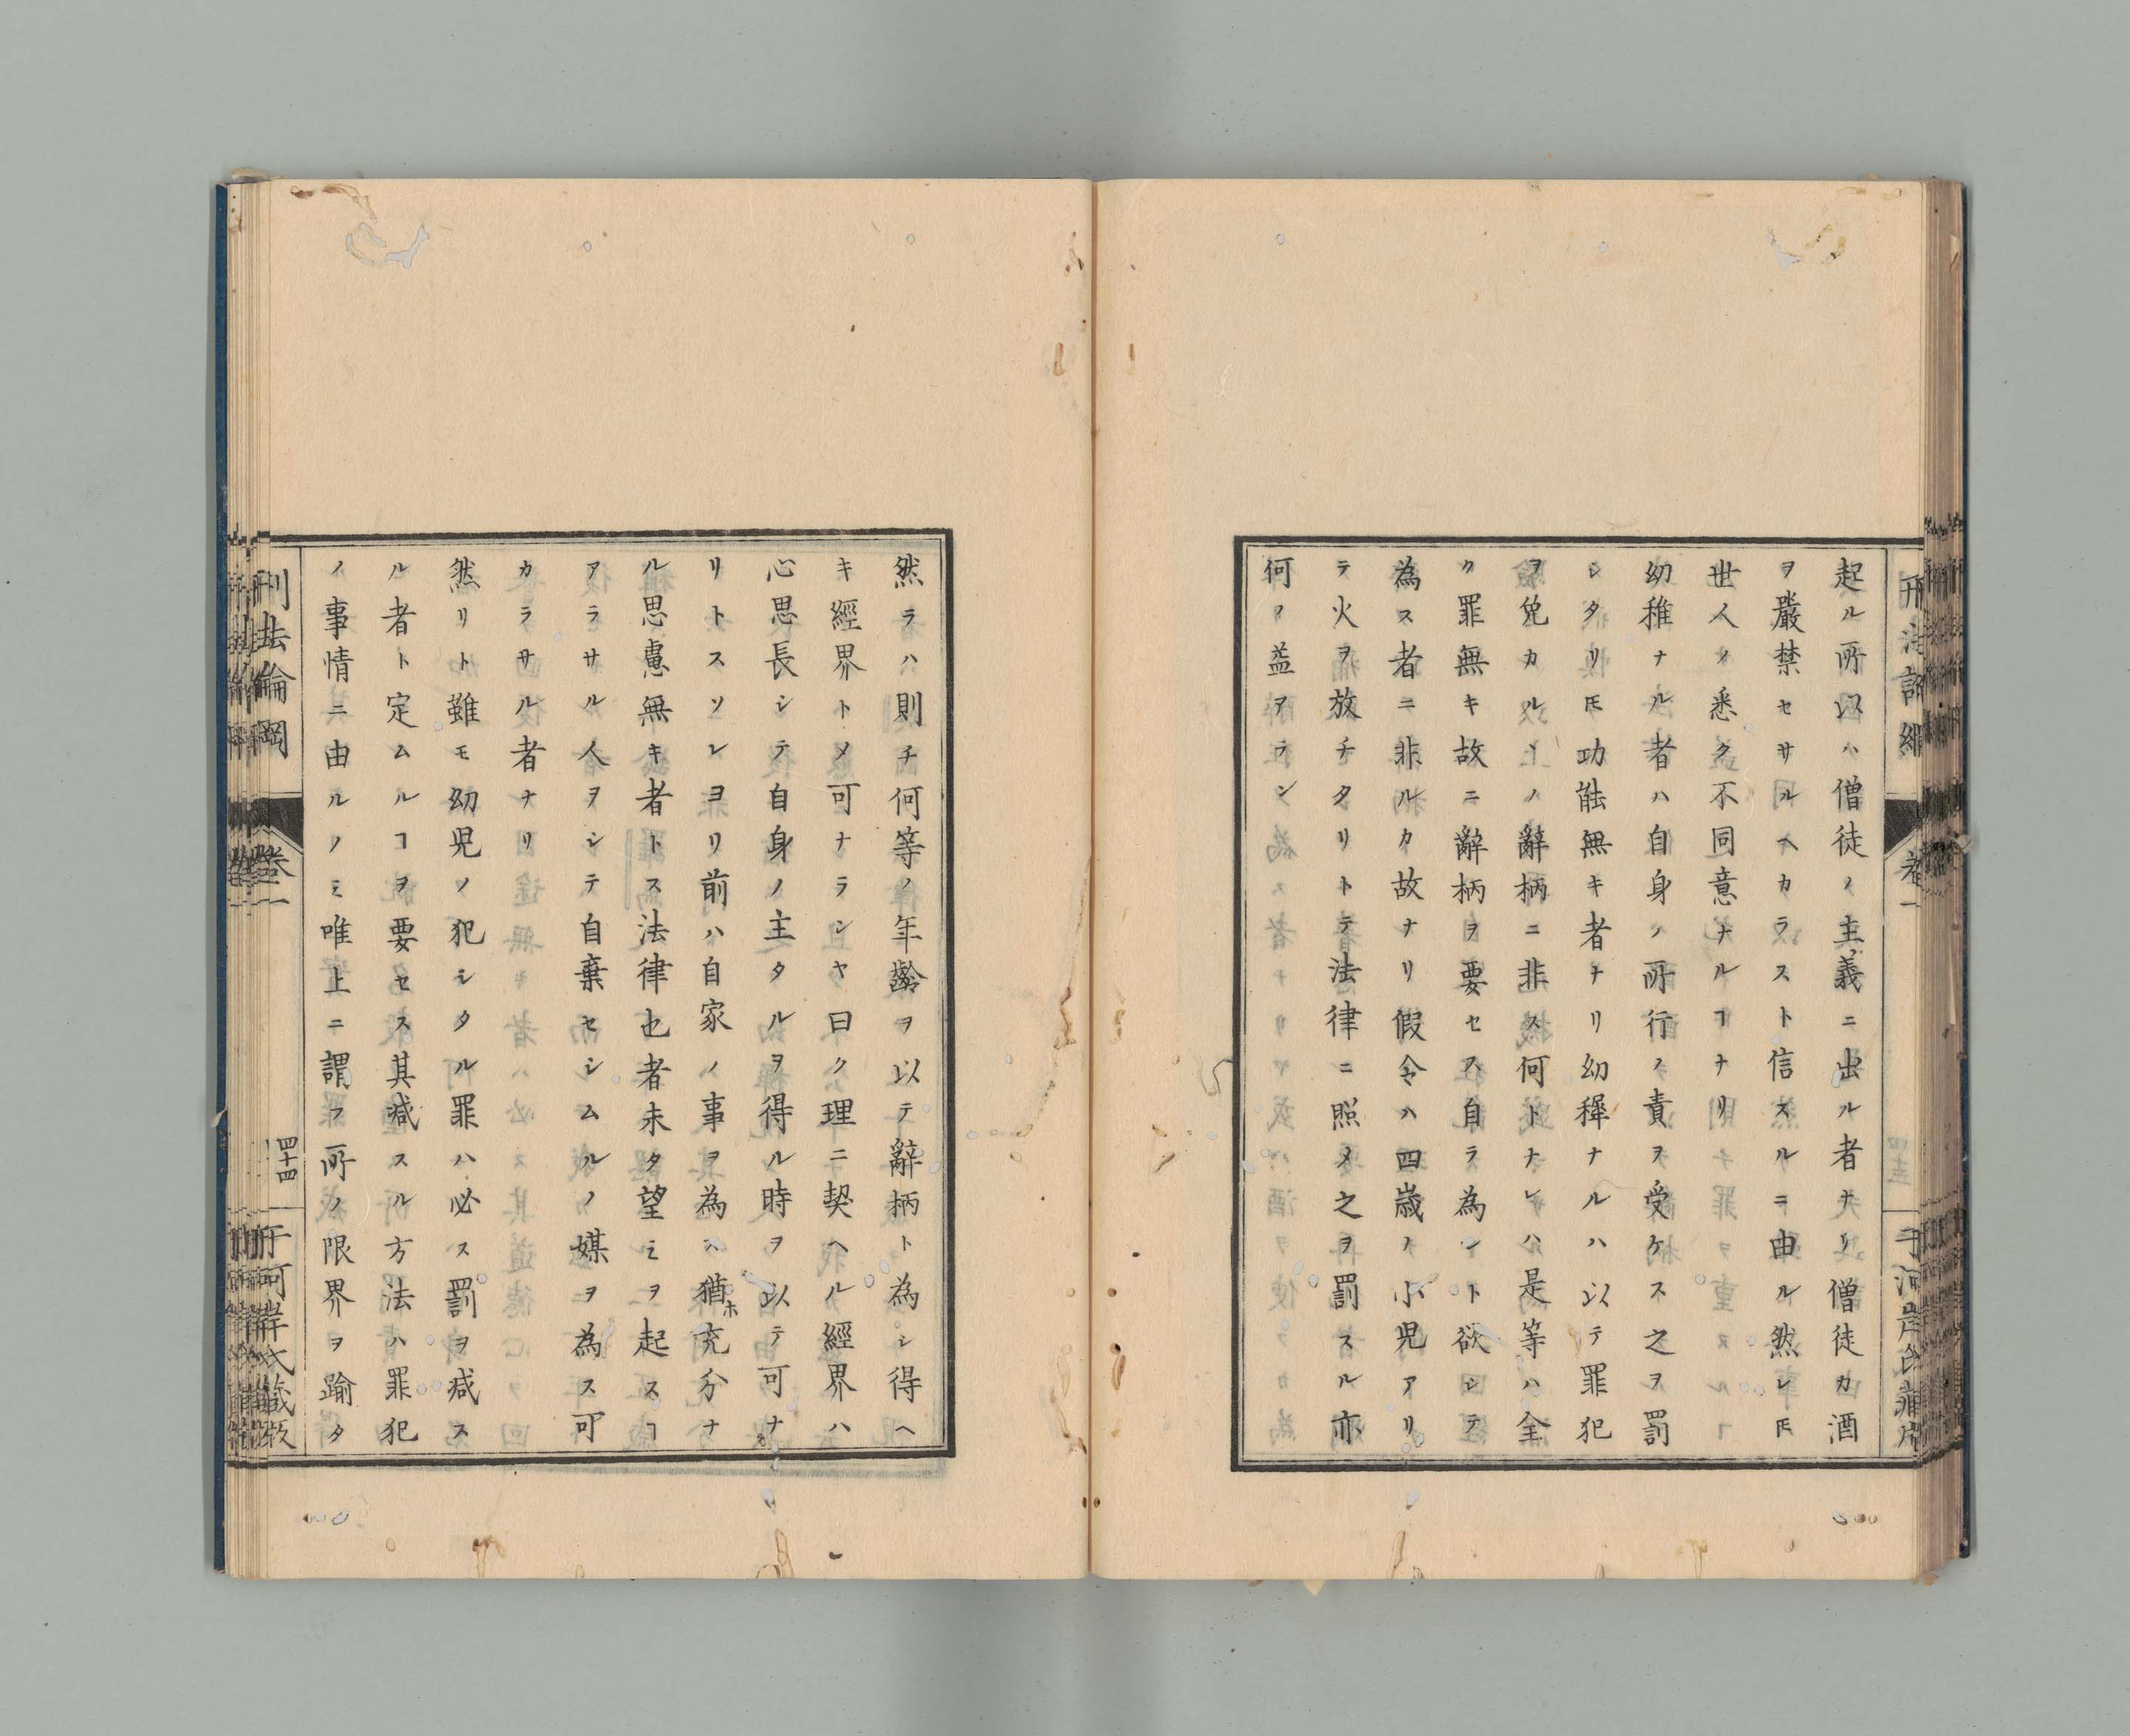 起ル所以ハ僧徒ノ主義ニ出ル者ナリ僧徒カ酒
ヲ嚴禁セサルヘカラスト信スルニ由ル然レ𪜈
世人ノ悉ク不同意ナルヿナリ
幼稚ナル者ハ自身ノ所行ノ責ヲ受ケス之ヲ罰
シタリ𪜈功能無キ者ナリ幼穉ナルハ以テ罪犯
ヲ免カルヽノ辭柄ニ非ス何トナレハ是等ハ全
ク罪無キ故ニ辭柄ヲ要セス自ラ為ント欲シテ
為ス者ニ非ルカ故ナリ假令ハ四歳ノ小兒アリ
テ火ヲ放チタリトテ法律ニ照メ之ヲ罰スル亦
何ノ益アラン
然ラハ則チ何等ノ年齡ヲ以テ辭柄ト為シ得ヘ
キ經界トメ可ナランヤ曰ク理ニ契ヘル經界ハ
心思長シテ自身ノ主タルヲ得ル時ヲ以テ可ナ
リトスソレヨリ前ハ自家ノ事ヲ為ス猶ホ充分ナ
ル思慮無キ者トス法律也者未タ望ミヲ起スヿ
アラサル人ヲシテ自棄セシムルノ媒ヲ為ス可
カラサル者ナリ
然リト雖モ幼兒ノ犯シタル罪ハ必ス罰ヲ减ス
ル者ト定ムルヿヲ要セス其减スル方法ハ罪犯
ノ事情ニ由ルノミ唯上ニ謂フ所ノ限界ヲ踰タ
卷一
四十四